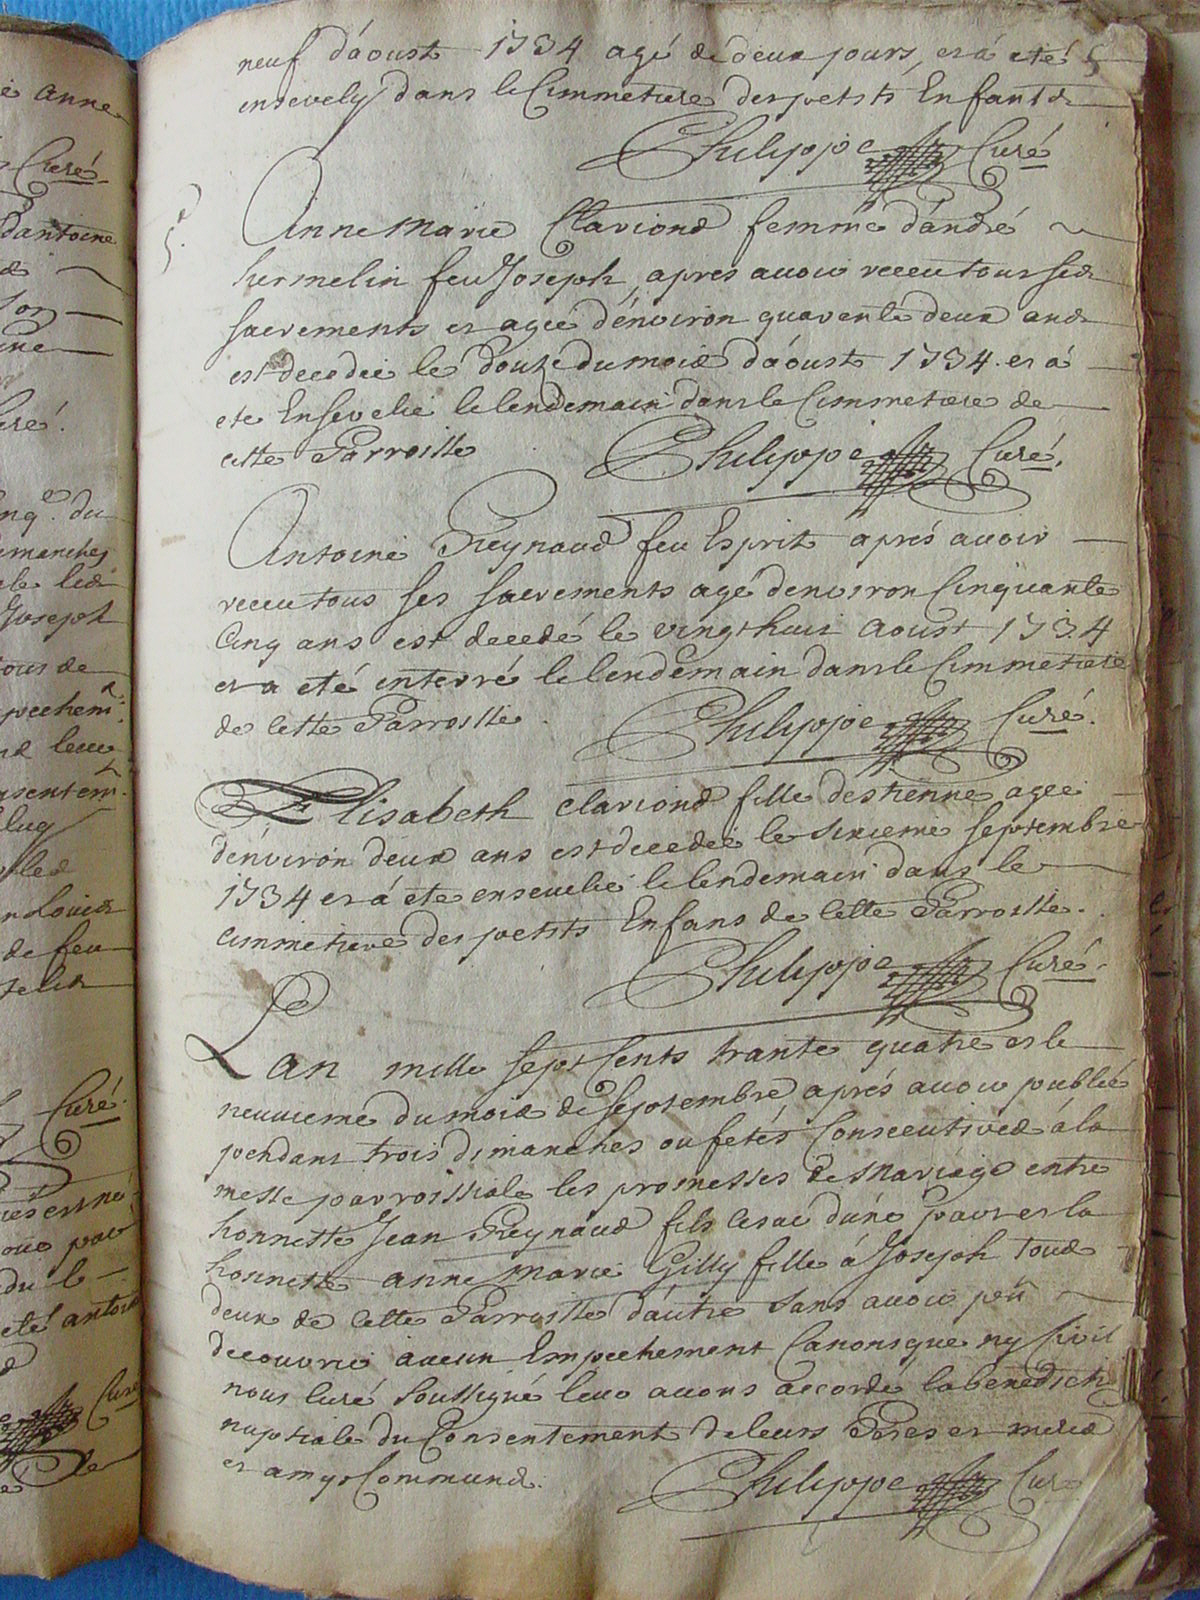 neuf d'aoust 1734 agé de deux jours, et a eté
ensevely dans le Cimmetiere des petits Enfants
Philippe Curé
Anne Marie Clariond femme d'andré
hermelin feu Joseph, apres avoir receu tous ses
sacrements et agée d'environ quarente deux ans
est decedée le douze du mois d'aoust 1734. et á
ete Ensevelie le lendemain dans le Cimmetiere de
cette Parroisse
Philippe Curé.
Antoine Reynaud feu Esprit aprés avoir
receu tous ses sacrements agé denviron Cinquante
Cinq ans est decedé le vingt huit Aoust 1734
et a eté enterré le lendemain dans le Cimmetiere
de Cette Parroisse.
Philippe Curé.
Elisabeth clariond fille d'estienne agee
d'environ deux ans est decedée le sixieme septembre
1734 et á ete ensevelie le lendemain dans le
cimmetiere des petits Enfans de Cette Parroisse.
Philippe Curé.
Lan mille sept Cents trante quatre et le
neuvieme du mois de Septembre aprés avoir publié
pendant trois dimanches ou fetes Consecutives á la
messe parroissiale les promesses de Mariage entre
honnette Jean Reynaud fils d'une part et la
honnette anne Marie Gilly fille á Joseph tous
deux de Cette Parroisse d'autre Sans avoir peû
decouvrir aucun Empechement Canonique ny Civil
nous Curé Soussigné leur avons accordé la benedich
nuptiale du Consentement de leurs Peres et meres
et amys Communs.
Philippe Curé